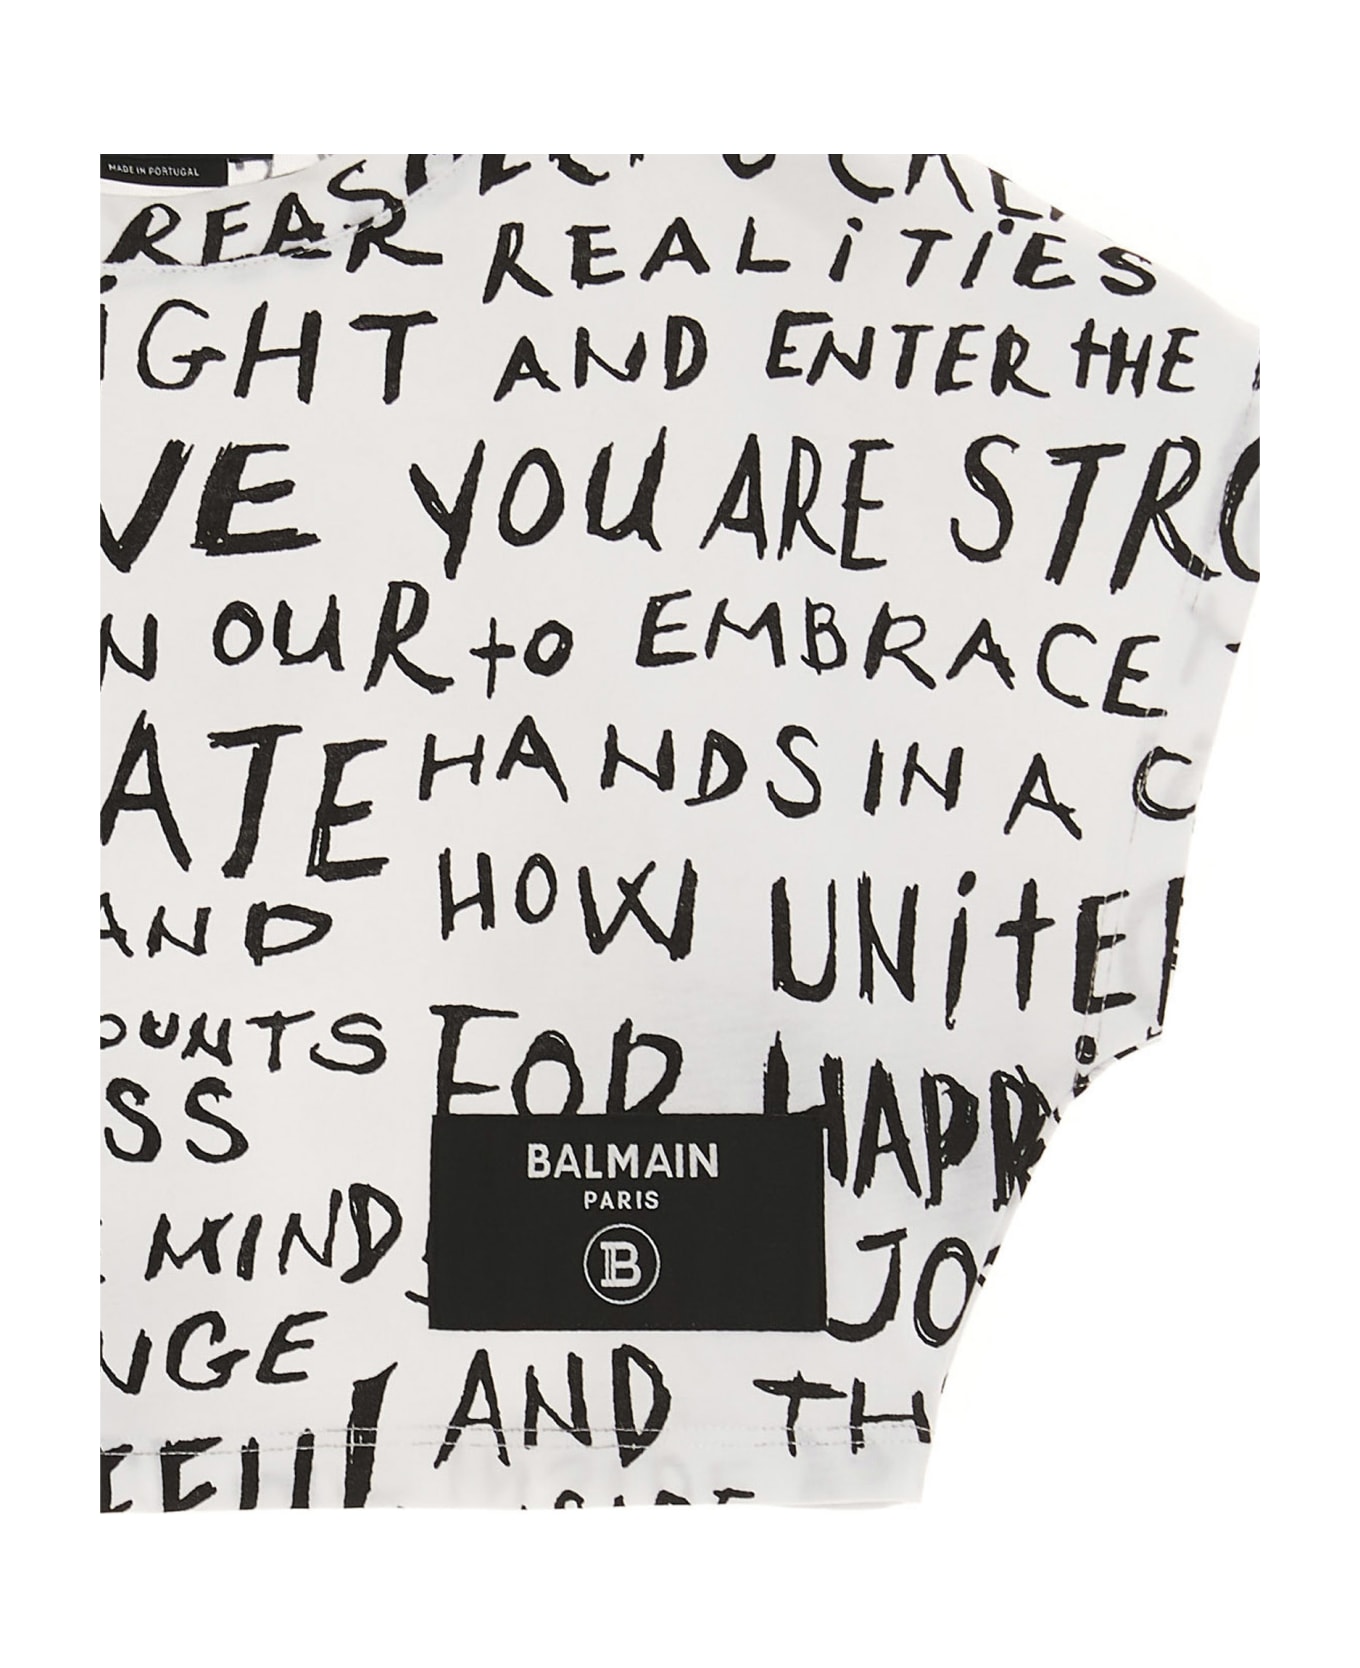 MADE IN PORTUGAL
REALiTiES
iGHT AND ENTER tHE
VE YOU ARE STRO
N OUR to EMBRACE
ATE HANDS IN A C
AND HOW UNitE
OUNTS FOR HAPP
SS
BALMAIN
PARIS
B
MIND JO
NGE AND TH